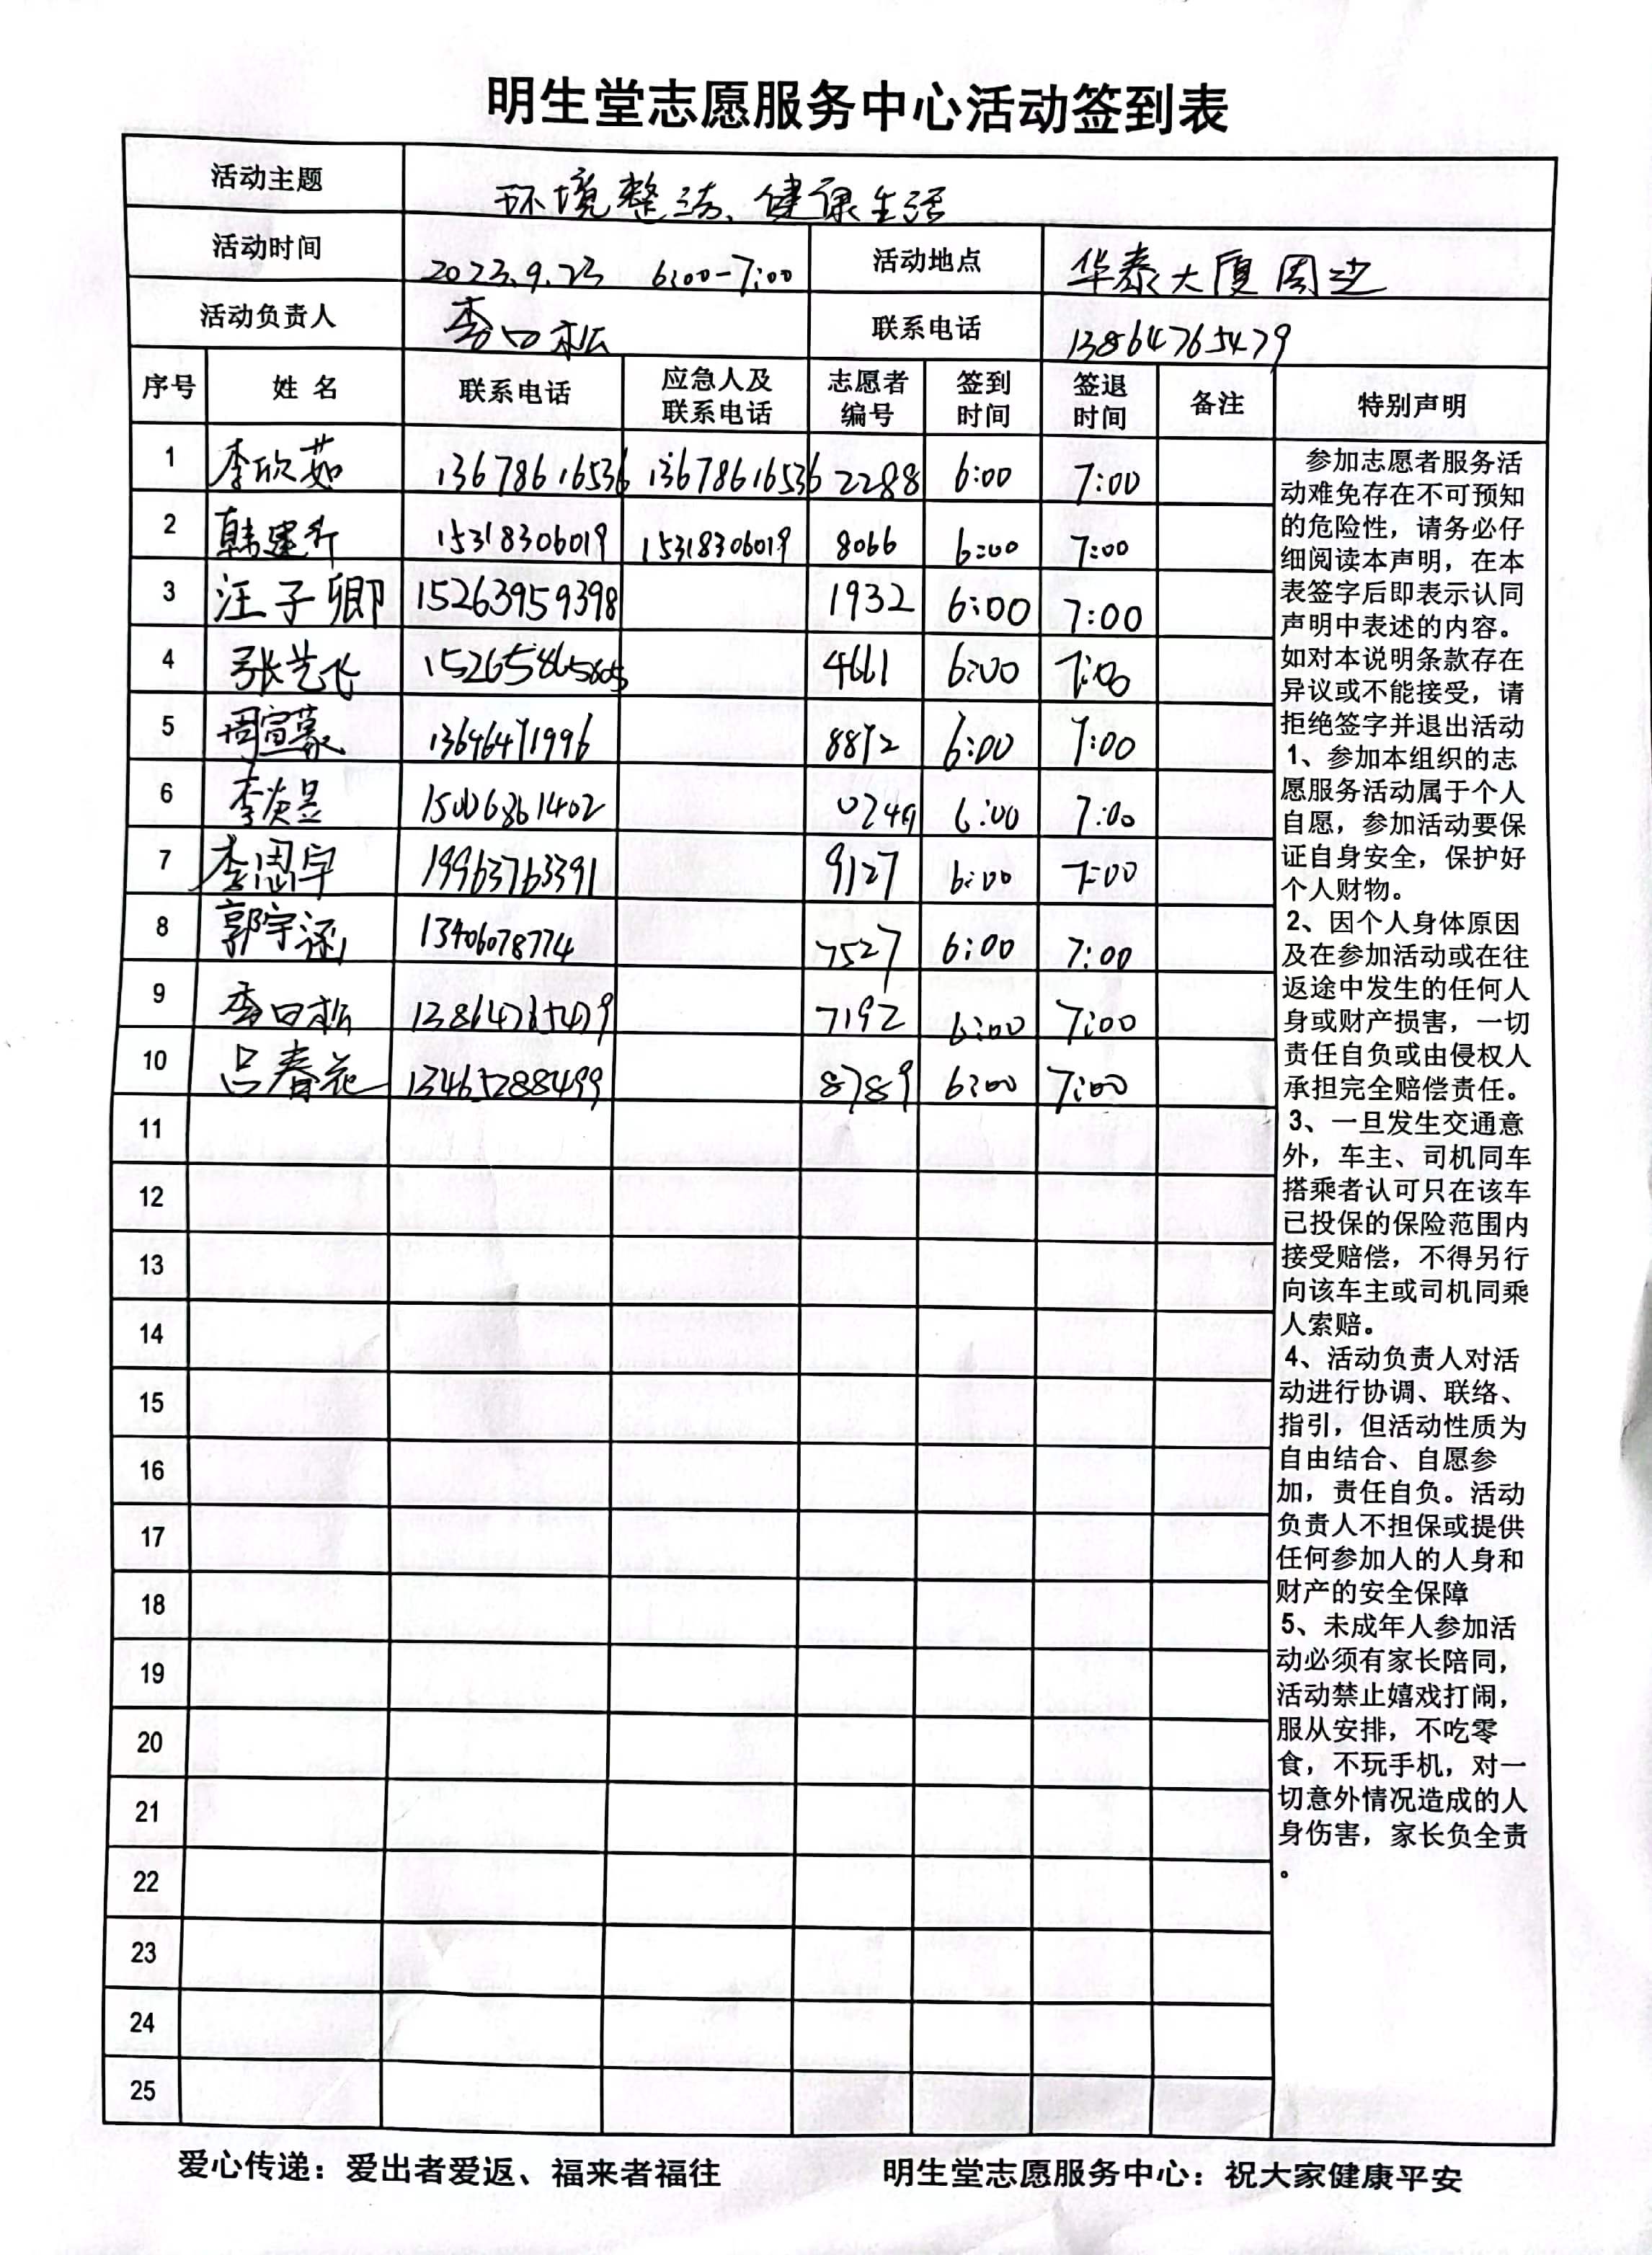 明生堂志愿服务中心活动签到表
活动主题 环境整洁、健康生活
活动时间 2023.9.23 6:00-7:00 活动地点 华泰大厦周边
活动负责人 李日松 联系电话 13864765479
序号 姓名 联系电话 应急人及联系电话 志愿者编号 签到时间 签退时间 备注 特别声明
1 李欣茹 13678616536 13678616536 2288 6:00 7:00
2 韩建 15318306019 15318306019 8066 6:00 7:00
3 汪子卿 15263959398 1932 6:00 7:00
4 张艺飞 15265865865 4661 6:00 7:00
5 周宣蒙 13646471996 8892 6:00 7:00
6 李炎昱 15006861402 0249 6:00 7:00
7 李思宇 19963763391 9127 6:00 7:00
8 郭宇涵 13406078774 7527 6:00 7:00
9 李日松 13864765479 7192 6:00 7:00
10 吕春花 13465288499 8789 6:00 7:00
11
12
13
14
15
16
17
18
19
20
21
22
23
24
25
参加志愿者服务活
动难免存在不可预知
的危险性，请务必仔
细阅读本声明，在本
表签字后即表示认同
声明中表述的内容。
如对本说明条款存在
异议或不能接受，请
拒绝签字并退出活动
1、参加本组织的志
愿服务活动属于个人
自愿，参加活动要保
证自身安全，保护好
个人财物。
2、因个人身体原因
及在参加活动或在往
返途中发生的任何人
身或财产损害，一切
责任自负或由侵权人
承担完全赔偿责任。
3、一旦发生交通意
外，车主、司机同车
搭乘者认可只在该车
已投保的保险范围内
接受赔偿，不得另行
向该车主或司机同乘
人索赔。
4、活动负责人对活
动进行协调、联络、
指引，但活动性质为
自由结合、自愿参
加，责任自负。活动
负责人不担保或提供
任何参加人的人身和
财产的安全保障
5、未成年人参加活
动必须有家长陪同，
活动禁止嬉戏打闹，
服从安排，不吃零
食，不玩手机，对一
切意外情况造成的人
身伤害，家长负全责
。
爱心传递：爱出者爱返、福来者福往 明生堂志愿服务中心：祝大家健康平安